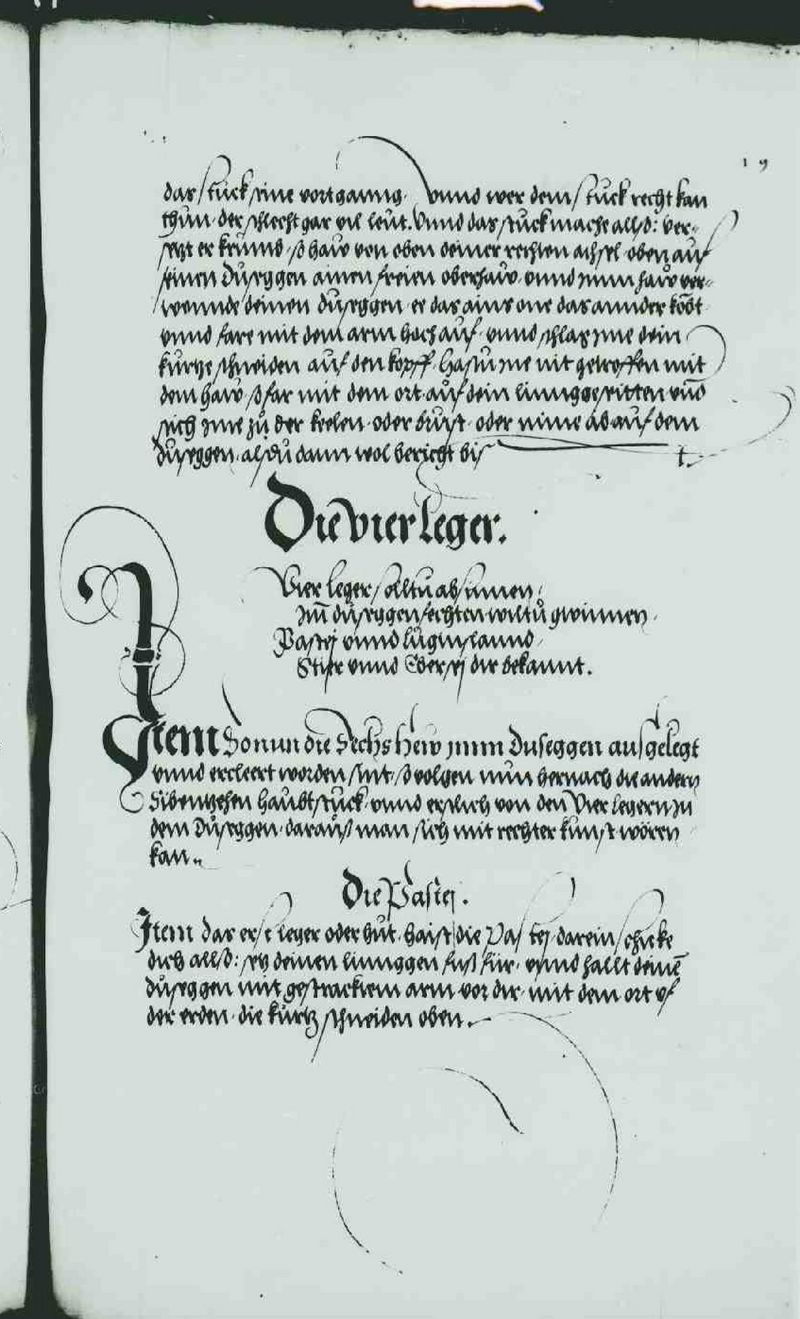 19
das stuck seine vortganng. Vnnd wer dem stuck recht kan
thun. der schlecht gar vil leut. Vnnd das stuck mache allso: ver-
setzt er krumb. so haw von oben deiner rechten achsel. oben auf
seinen Duseggen ainen freien oberhaw. vnnd jnn haw ver-
wennde deinen duseggen. er das ains one das annder kobt
vnnd fare mit dem arm hoch auf. vnnd schlag jme dein
kurtze schneiden auf den kopff. hastu jne nit getroffen mit
dem haw. so far mit dem ort auf dein linngge seitten vnd
stich jme zu der keelen. oder brust. oder nime ab auf dem
duseggen. als du dann wol bericht bis t.
Die vier leger.
Vier leger solltu absinnen,
Im duseggen fechten wiltu gwinnen,
Pastej vnnd luginslannd,
Stier vnnd Eber sej dir bekannt.
Item So nun die Sechs hew jnnm Duseggen ausgelegt
vnnd ercleert worden sint. so volgen nun hernach die andern
Sibentzehen haubtstuck. vnnd erstlich von den Vier legern zu
dem Duseggen. darauß man sich mit rechter kunst wören
kan.
Die Pastej.
Item das erst leger oder hut. haist die Pastej. darein schicke
dich allso: setz deinen linnggen fuß für. vnnd hallt deinē
duseggen mit gestracktem arm vor dir. mit dem ort vf
der erden. die kurtz schneiden oben.